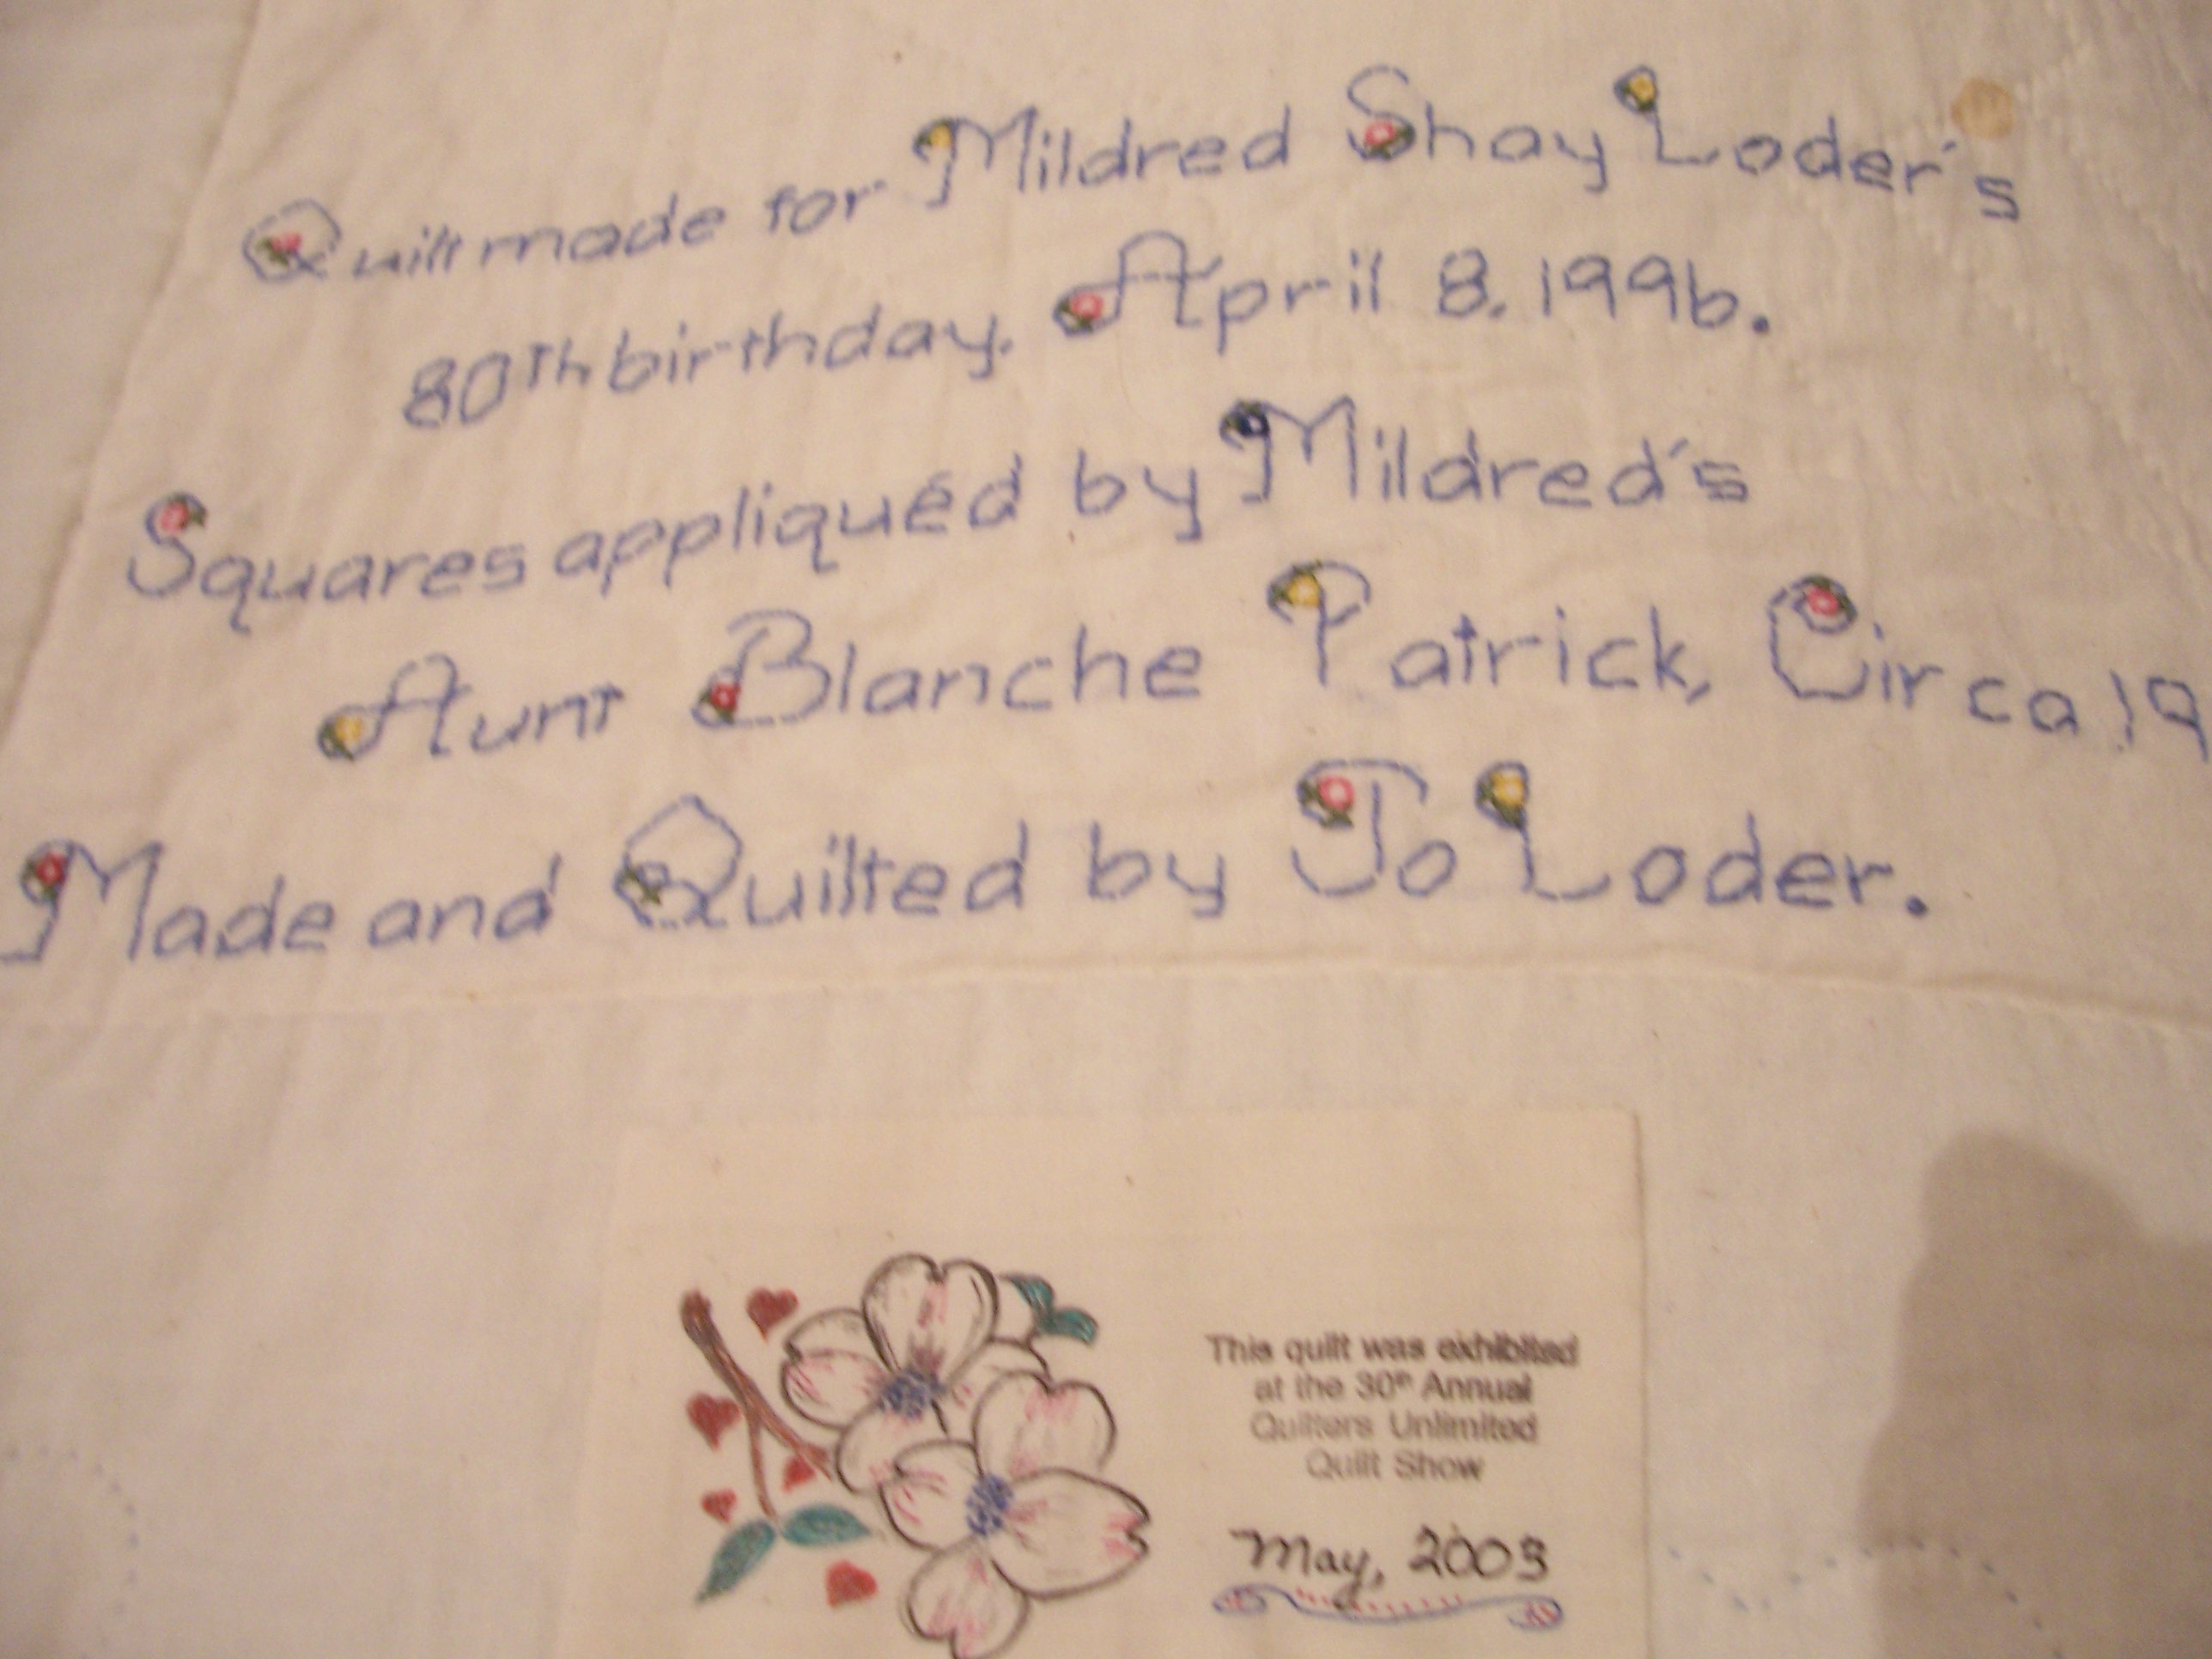 Quilt made for Mildred Shay Loder's
80Th birthday, April 8, 1996.
Squares appliquéd by Mildred's
Aunt Blanche Patrick, Circa 19
Made and Quilted by Jo Loder.
This quilt was exhibited
at the 30th Annual
Quilters Unlimited
Quilt Show
May, 2003